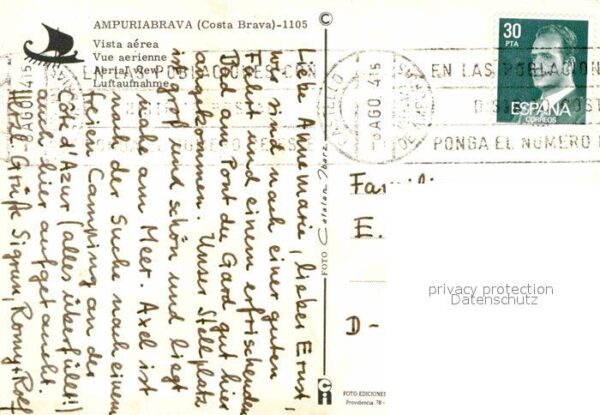 AMPURIABRAVA (Costa Brava)-1105
Vista aérea
Vue aerienne
Aerial view
Luftaufnahme
Liebe Annemarie, lieber Ernst,
wir sind nach einer guten
Fahrt und einem erfrischenden
Bad am Pont du Gard gut hier
angekommen. Unser Stellplatz
ist groß und schön und liegt
nahe am Meer. Axel ist
nach der Suche nach einem
freien Camping an der
Côte d'Azur (alles überfüllt!)
auch hier aufgetaucht.
Herzl. Grüße Sigrun, Romy + Rolf
FOTO Catalan Ibarz
FOTO EDICIONES
Providencia 78 -
EN LAS POBLACIONES CON
EN LAS POBLACION
DIS
PONGA EL NUMERO
AGO. 1415
30
PTA
ESPAÑA
CORREOS
Famili
E.
D-
privacy protection
Datenschutz